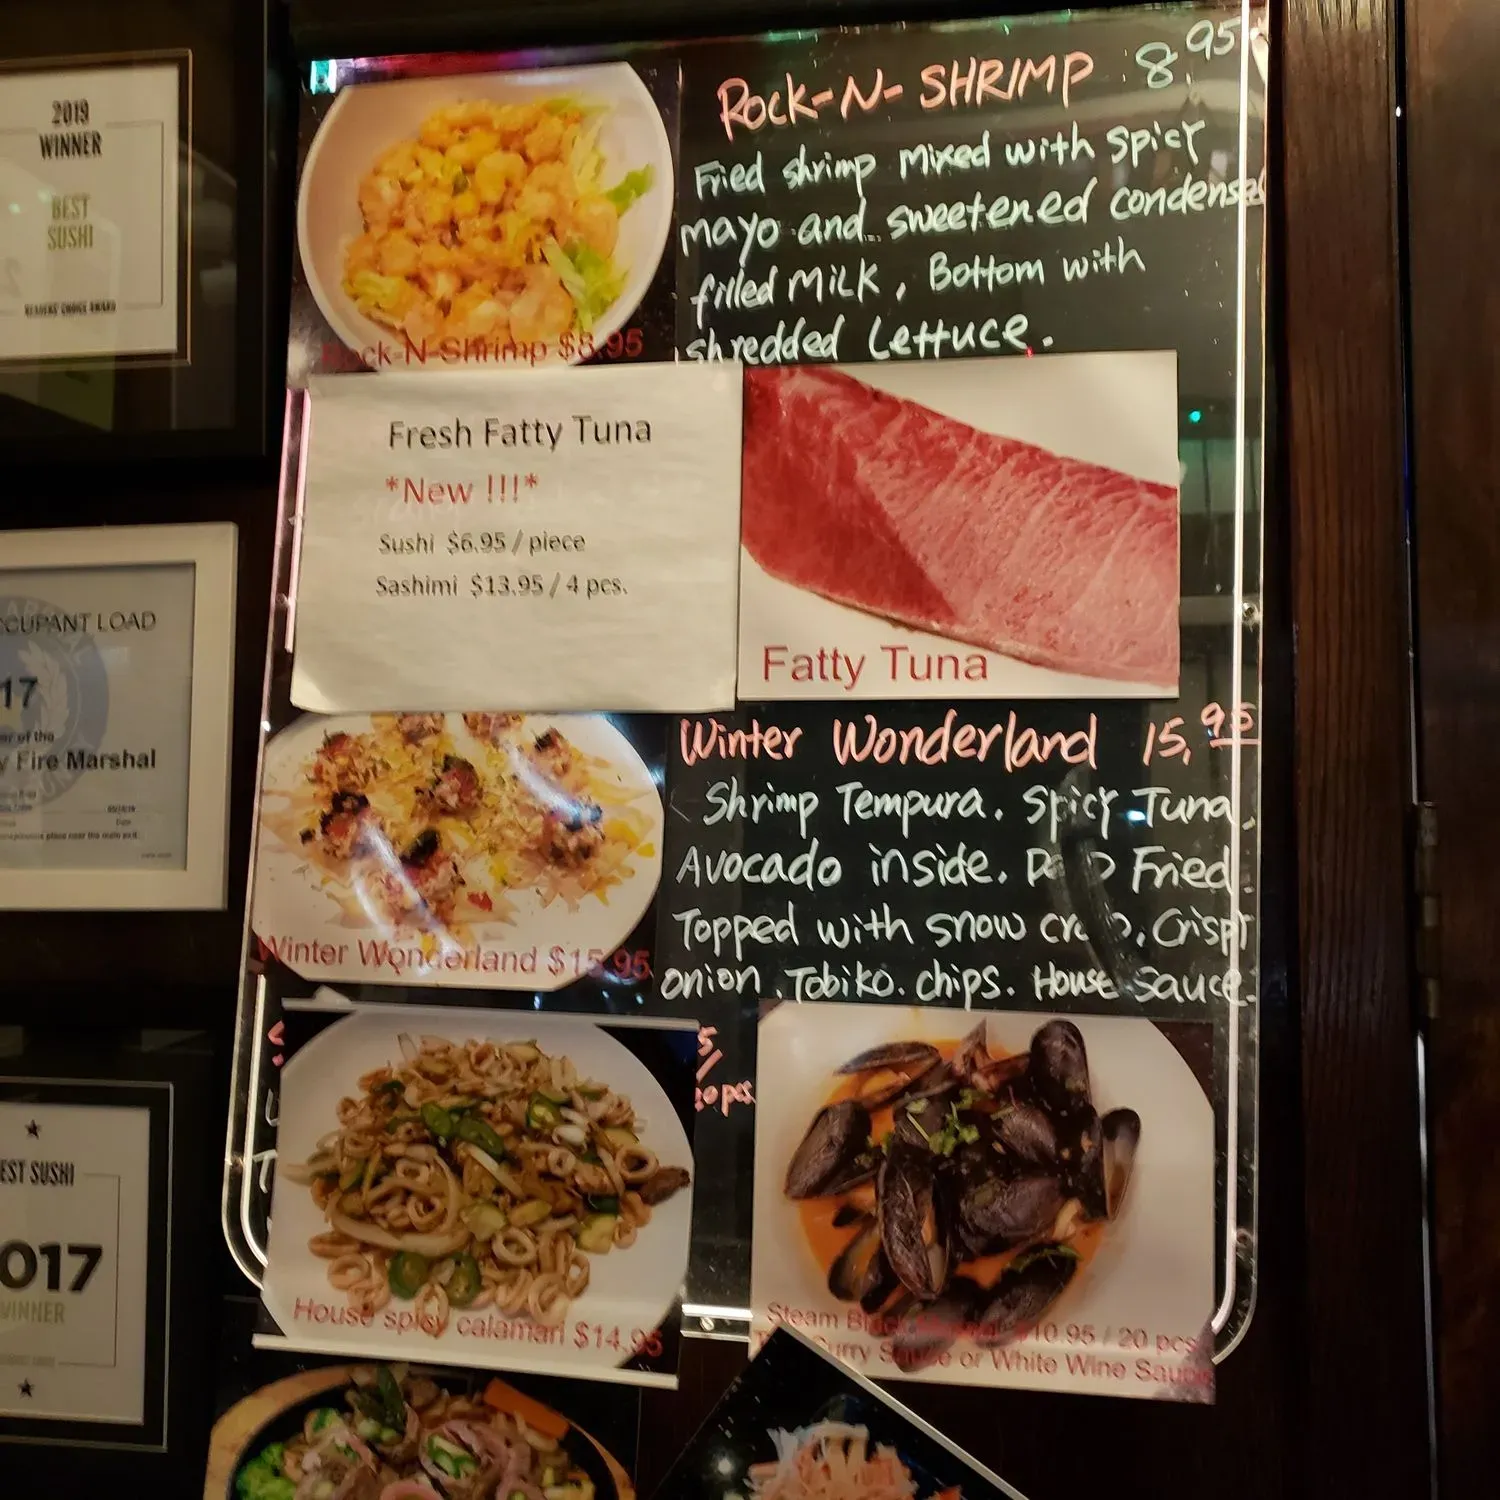 2019
WINNER
BEST
SUSHI
READERS' CHOICE AWARD
OCCUPANT LOAD
17
of the
Fire Marshal
EST SUSHI
017
WINNER
ROCK-N-SHRIMP 8.95
Fried shrimp Mixed with Spicy
mayo and sweetened condensed
filled MILK, Bottom with
shredded Lettuce.
Rock-N-Shrimp $8.95
Fresh Fatty Tuna
*New !!!*
Sushi $6.95 / piece
Sashimi $13.95 / 4 pcs.
Fatty Tuna
Winter Wonderland 15.95
Shrimp Tempura. Spicy Tuna.
Avocado inside. Fried.
Topped with snow crab, Crispy
onion. Tobiko. chips. House Sauce.
Winter Wonderland $15.95
5/
20 pcs
House spicy calamari $14.95
Steam Black $10.95 / 20 pcs
Curry Sauce or White Wine Sauce